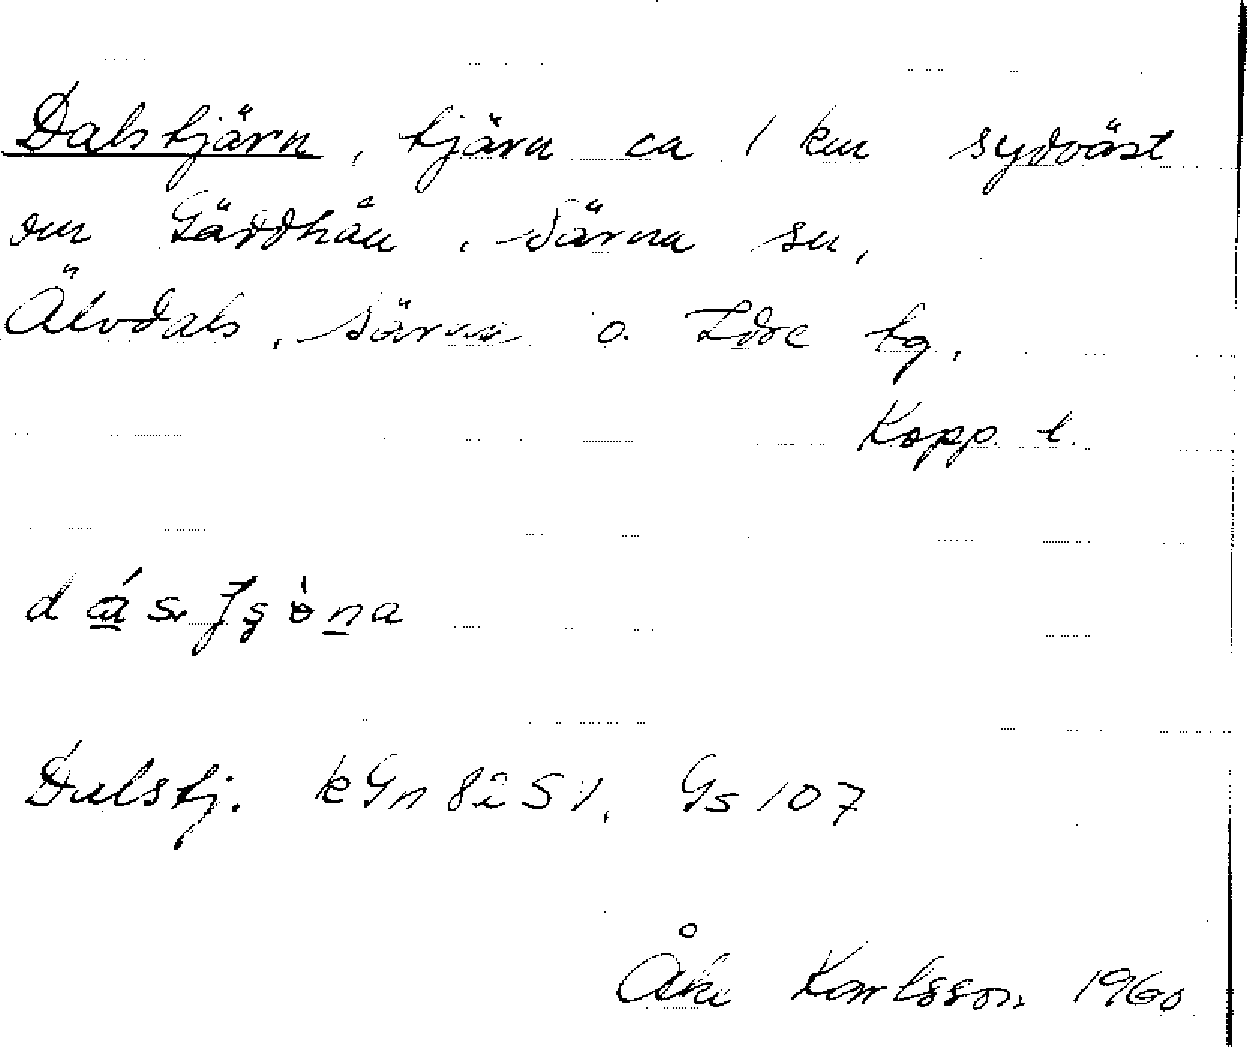 Dalstjärn, tjärn ca 1 km sydväst
om Gärdhån, Särna sn,
Älvdals, Särna o. Idre tg,
Kopp. l.
Dalstj. kGn 82 SV, Gs 107
Åke Karlsson 1960